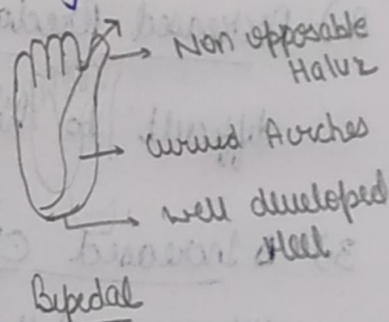 Non opposable
Halux
curved Arches
well developed
Heel
Bipedal